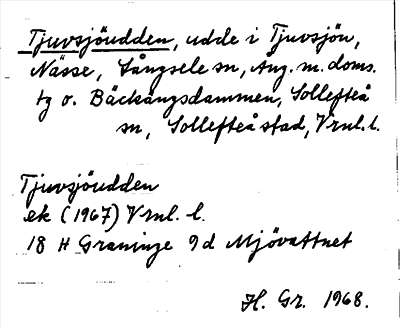 Tjuvsjöudden, udde i Tjuvsjön,
Nässe, Långsele sn, Ång. m. doms.
tg o. Bäcksängsdammen, Sollefteå
sn, Sollefteå stad, Vrnl. l.
Tjuvsjöudden
ek (1967) Vrnl. l.
18 H Graninge 9d Mjövattnet
H. Gr. 1968.